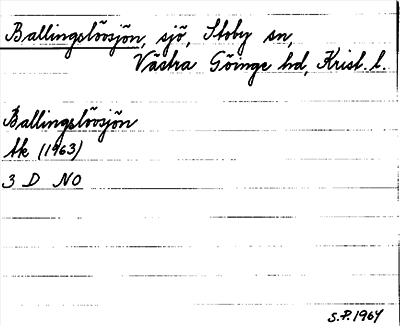 Ballingslövsjön, sjö, Stoby sn,
Västra Göinge hd, Krist. l.
Ballingslövsjön
Ak (1963)
3 D NO
S.P. 1964